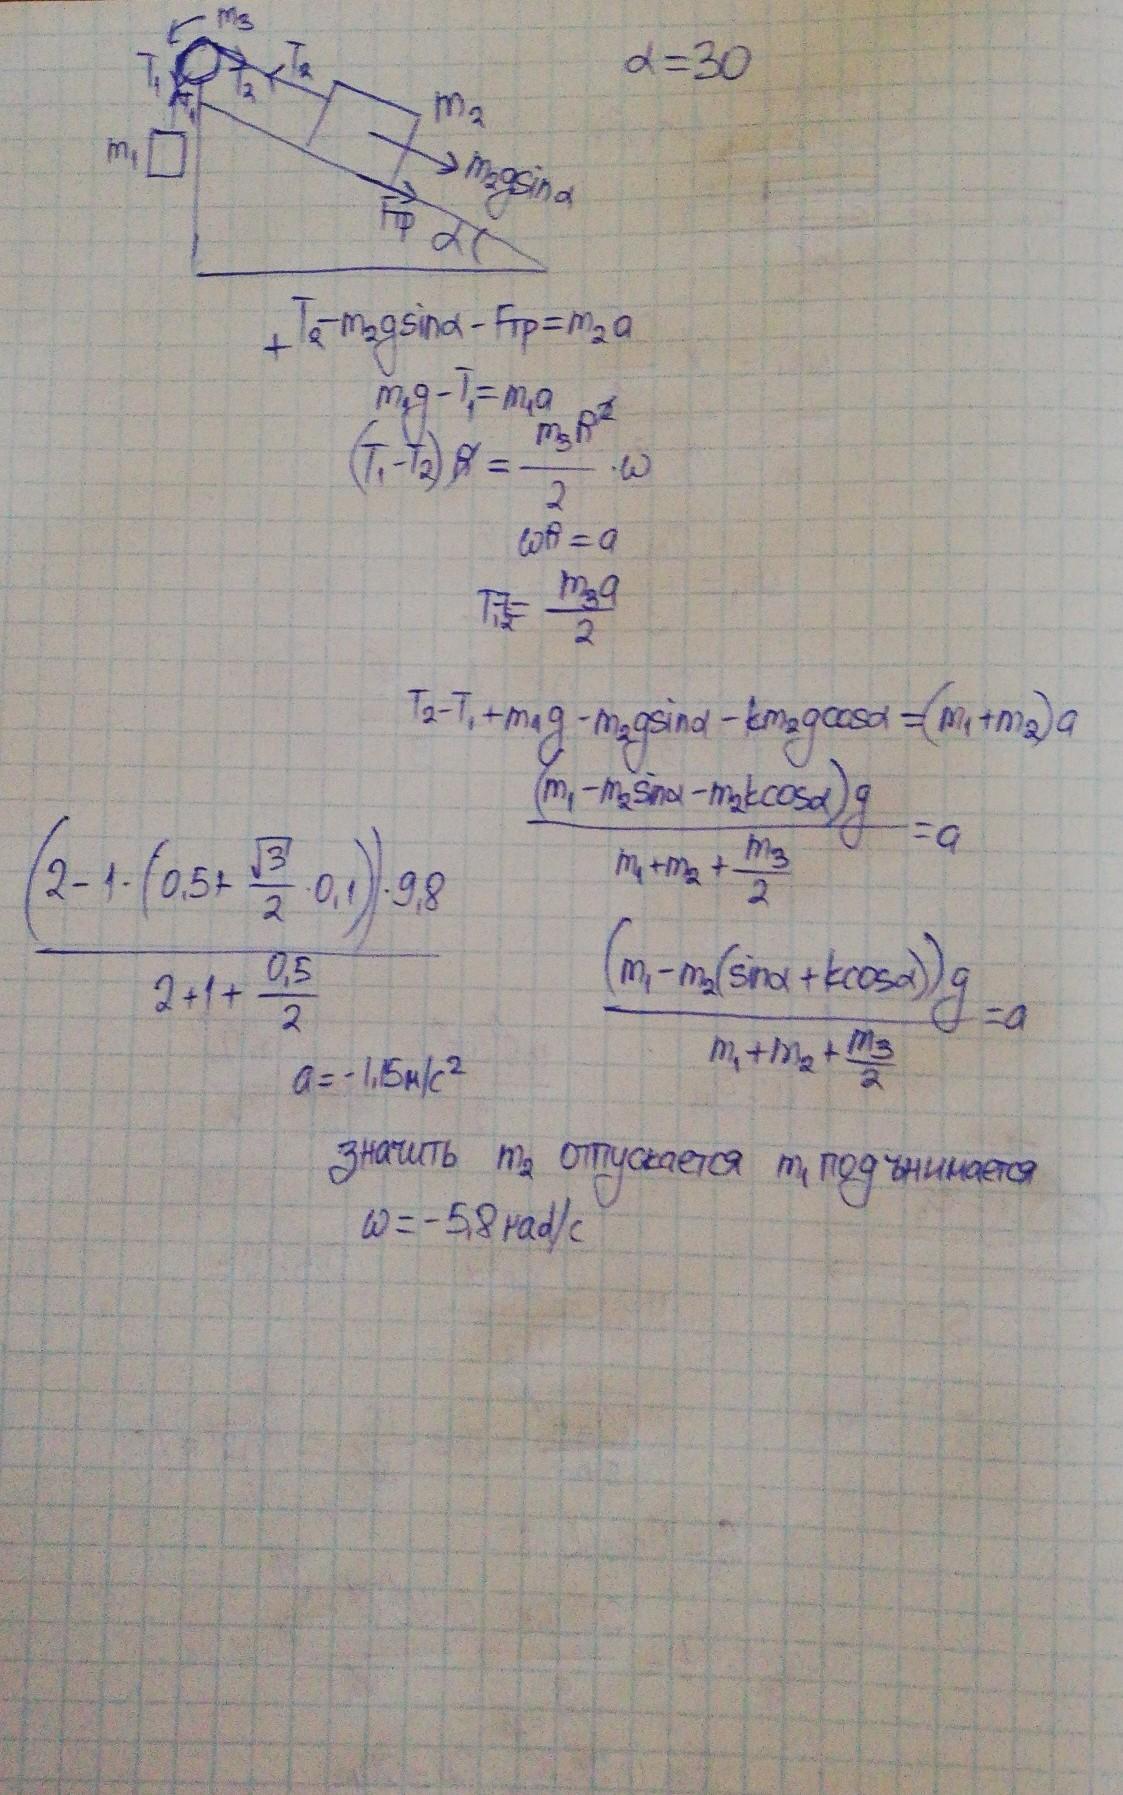 m₃
α=30
T₁ T₂ T₂
m₂
m₁
m₂gsinα
Fтр α
T₂-m₂gsinα-Fтр=m₂a
+
m₁g-T₁=m₁a
(T₁-T₂)R = m₃R²/2 ·ω
ωR=a
m₃a/2
T₂-T₁+m₁g-m₂gsinα-km₂gcosα=(m₁+m₂)a
(m₁-m₂sinα-m₂kcosα)g/(m₁+m₂+m₃/2) =a
(2-1·(0,5+√3/2·0,1))·9,8/(2+1+0,5/2)
(m₁-m₂(sinα+kcosα))g/(m₁+m₂+m₃/2) =a
a=-1,15м/с²
значить m₂ отпускается m₁ подънимается
ω=-5,8 rad/c